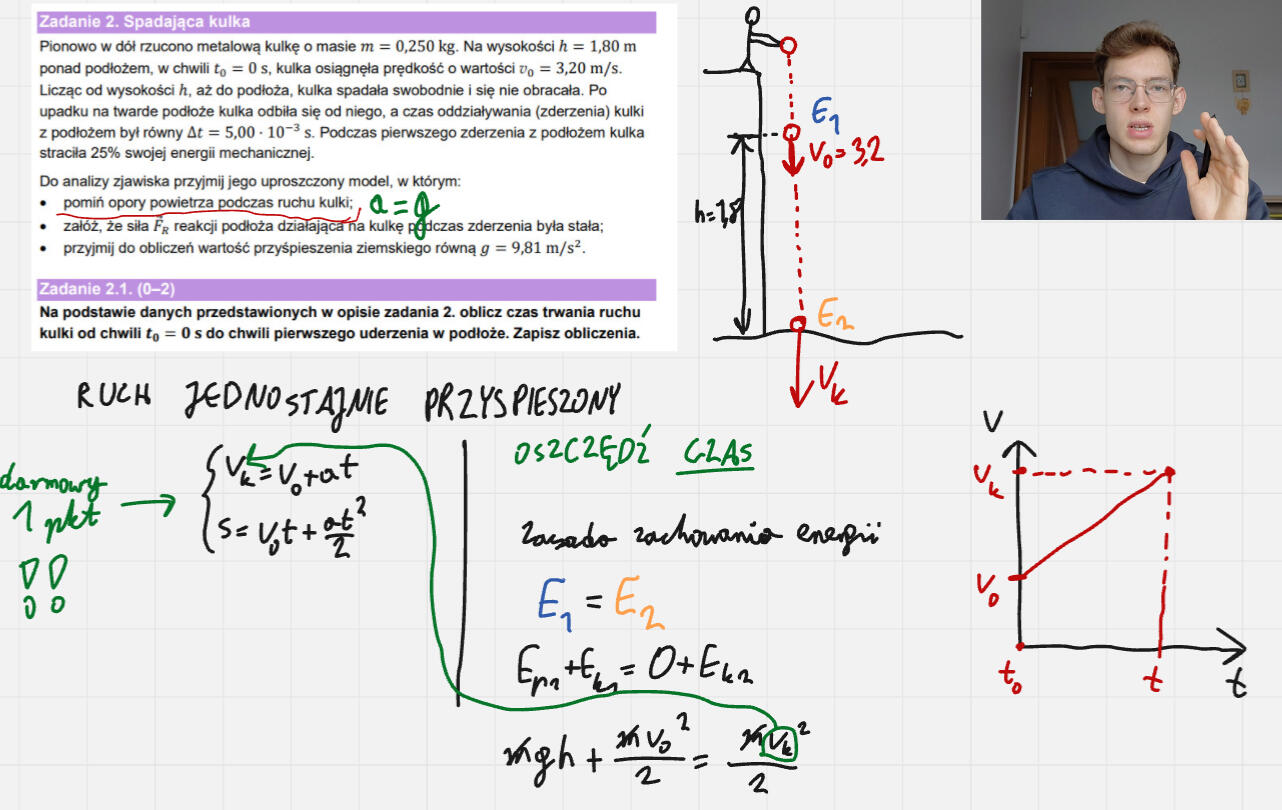 Zadanie 2. Spadająca kulka
Pionowo w dół rzucono metalową kulkę o masie m = 0,250 kg. Na wysokości h = 1,80 m
ponad podłożem, w chwili t₀ = 0 s, kulka osiągnęła prędkość o wartości v₀ = 3,20 m/s.
Licząc od wysokości h, aż do podłoża, kulka spadała swobodnie i się nie obracała. Po
upadku na twarde podłoże kulka odbiła się od niego, a czas oddziaływania (zderzenia) kulki
z podłożem był równy Δt = 5,00 · 10⁻³ s. Podczas pierwszego zderzenia z podłożem kulka
straciła 25% swojej energii mechanicznej.
Do analizy zjawiska przyjmij jego uproszczony model, w którym:
• pomiń opory powietrza podczas ruchu kulki;
a = g
• załóż, że siła F⃗_R reakcji podłoża działająca na kulkę podczas zderzenia była stała;
• przyjmij do obliczeń wartość przyśpieszenia ziemskiego równą g = 9,81 m/s².
Zadanie 2.1. (0–2)
Na podstawie danych przedstawionych w opisie zadania 2. oblicz czas trwania ruchu
kulki od chwili t₀ = 0 s do chwili pierwszego uderzenia w podłoże. Zapisz obliczenia.
E₁
V₀ = 3,2
h=1,8
E₂
Vₖ
RUCH JEDNOSTAJNIE PRZYSPIESZONY
darmowy
1 pkt
!!
Vₖ = V₀ + at
s = V₀t + at²/2
OSZCZĘDŹ CZAS
Zasada zachowania energii
E₁ = E₂
Eₚ₁ + Eₖ₁ = 0 + Eₖ₂
mgh + mv₀²/2 = mvₖ²/2
V
Vₖ
V₀
t₀
t
t